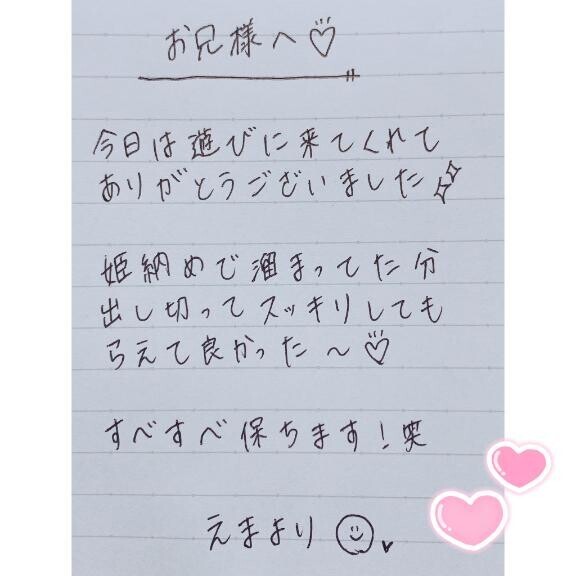 お兄様へ♡
今日は遊びに来てくれて
ありがとうございました
姫納めで溜まってた分
出し切ってスッキリしても
らえて良かった〜♡
すべすべ保ちます！笑
えまより